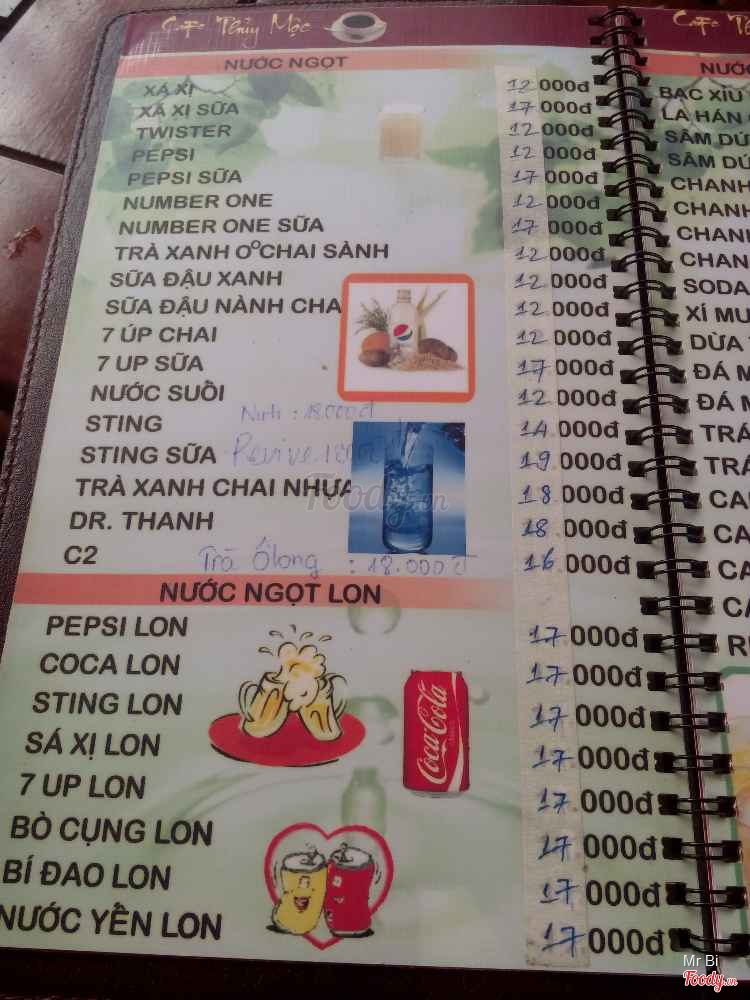 Cafe Thủy Mộc
NƯỚC NGỌT
XÁ XỊ 12 000đ
XÁ XỊ SỮA 17 000đ
TWISTER 12 000đ
PEPSI 12 000đ
PEPSI SỮA 17 000đ
NUMBER ONE 12 000đ
NUMBER ONE SỮA 17 000đ
TRÀ XANH OºCHAI SÀNH 12 000đ
SỮA ĐẬU XANH 12 000đ
SỮA ĐẬU NÀNH CHA 12 000đ
7 ÚP CHAI 12 000đ
7 UP SỮA 17 000đ
NƯỚC SUỒI 12 000đ
STING 14 000đ
STING SỮA 19 000đ
TRÀ XANH CHAI NHỰA 18 000đ
DR. THANH 18 000đ
C2 16 000đ
: 18.000đ
Revive
Trà Ôlong : 18.000đ
NƯỚC NGỌT LON
PEPSI LON 17 000đ
COCA LON 17 000đ
STING LON 17 000đ
SÁ XỊ LON 17 000đ
7 UP LON 17 000đ
BÒ CỤNG LON 17 000đ
BÍ ĐAO LON 17 000đ
NƯỚC YẾN LON 17 000đ
Coca-Cola
Cafe
NƯỚ
BẠC XỈU
LA HÁN
SÂM DỨ
SÂM DỨ
CHANH
CHANH
CHAN
CHAN
SODA
XÍ MU
DỪA
ĐÁ M
ĐÁ M
TRÁ
TRÁ
CA
CA
CA
CA
Foody.vn
Mr Bi
Foody.vn